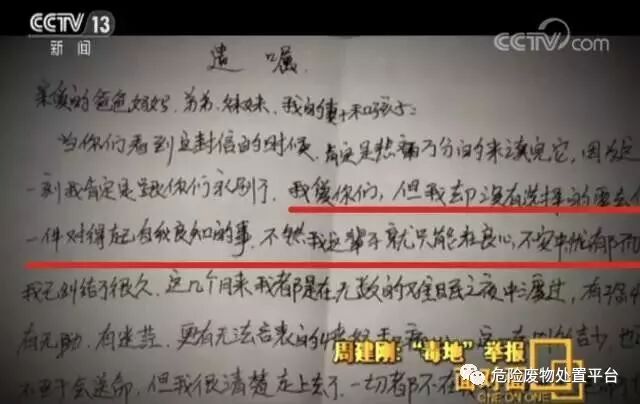 CCTV 13
新闻
CCTV.com
遗 嘱
亲爱的爸爸妈妈、弟弟、妹妹、我的妻子和孩子：
当你们看到这封信的时候，肯定是悲痛万分的来读完它，因为这
一刻我肯定是跟你们永别了，我爱你们，但我却没有选择的要去
一件对得起自己良知的事，不然我这辈子就只能在良心不安中
我已纠结了很久，这几个月来我都是在无数的不眠之夜中渡过，有
有无助，有迷茫，更有无法言表的
周建刚：“毒地”举报
但我很清楚走上去了，一切都不在我
ONE ON ONE
危险废物处置平台